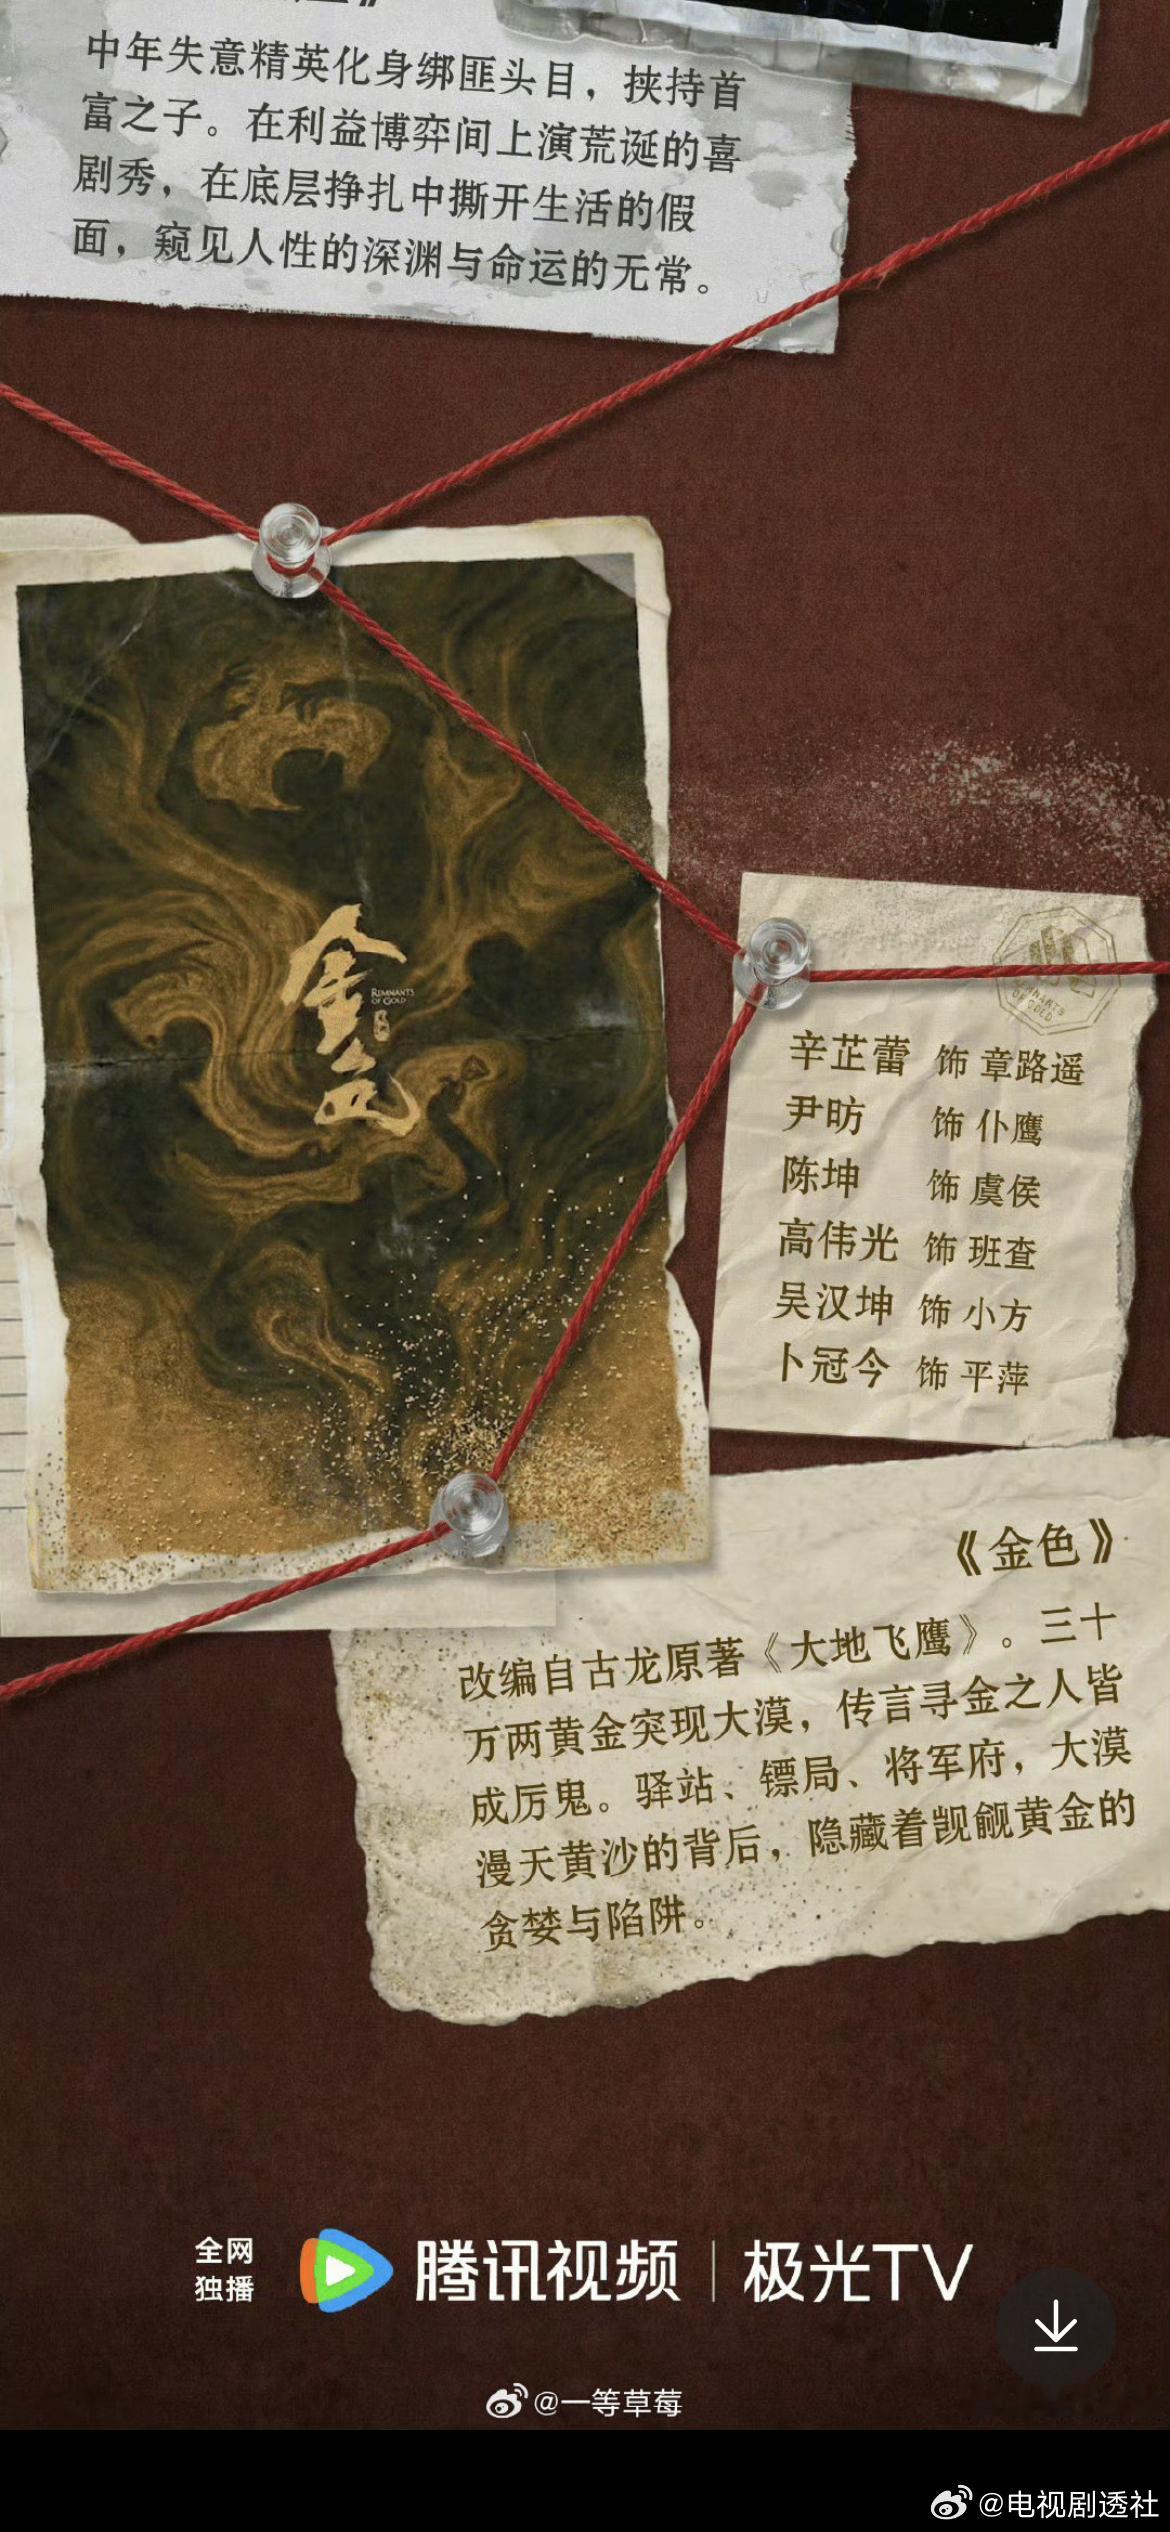 中年失意精英化身绑匪头目，挟持首
富之子。在利益博弈间上演荒诞的喜
剧秀，在底层挣扎中撕开生活的假
面，窥见人性的深渊与命运的无常。
金色
REMNANTS
OF GOLD
辛芷蕾 饰 章路遥
尹昉 饰 仆鹰
陈坤 饰 虞侯
高伟光 饰 班查
吴汉坤 饰 小方
卜冠今 饰 平萍
《金色》
改编自古龙原著《大地飞鹰》。三十
万两黄金突现大漠，传言寻金之人皆
成厉鬼。驿站、镖局、将军府，大漠
漫天黄沙的背后，隐藏着觊觎黄金的
贪婪与陷阱。
全网
独播
腾讯视频 | 极光TV
@一等草莓
@电视剧透社